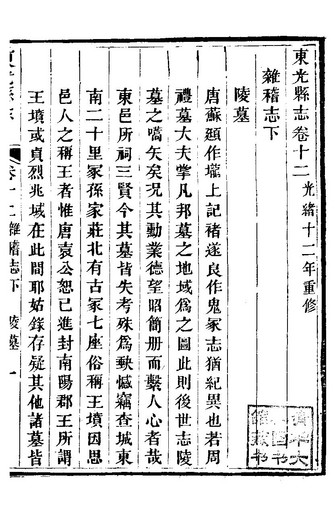 東光縣志卷十二 光緒十二年重修
雜稽志下
陵墓
唐蘇頲作壠上記褚遂良作鬼冢志猶紀異也若周
禮墓大夫掌凡邦墓之地域爲之圖此則後世志陵
墓之嚆矢矣況其勳業德望昭簡册而繫人心者哉
東邑所祠三賢今其墓皆失考殊爲缺憾竊查城東
南二十里冢孫家莊北有古冢七座俗稱王墳因思
邑人之稱王者惟唐袁公恕已進封南陽郡王所謂
王墳或貞烈兆域在此間耶姑錄存疑其他諸墓皆
卷十二 雜稽志下 陵墓 一